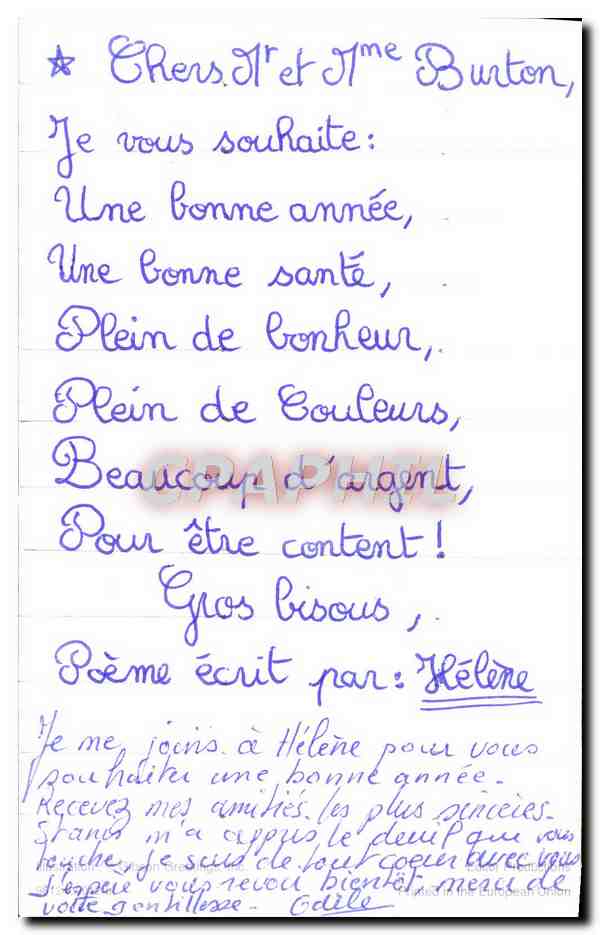 ☆ Chers Mr et Mme Burton,
Je vous souhaite:
Une bonne année,
Une bonne santé,
Plein de bonheur,
Plein de Couleurs,
Beaucoup d'argent,
CPAPHIL
Pour être content!
Gros bisous,
Poème écrit par: Hélène
Je me joins à Hélène pour vous
souhaiter une bonne année.
Recevez mes amitiés les plus sincères.
m'a appris le deuil qui vous
touche, je suis de tout coeur avec vous
J'espère vous revoir bientôt merci de
votre gentillesse. Odile
in the European Union